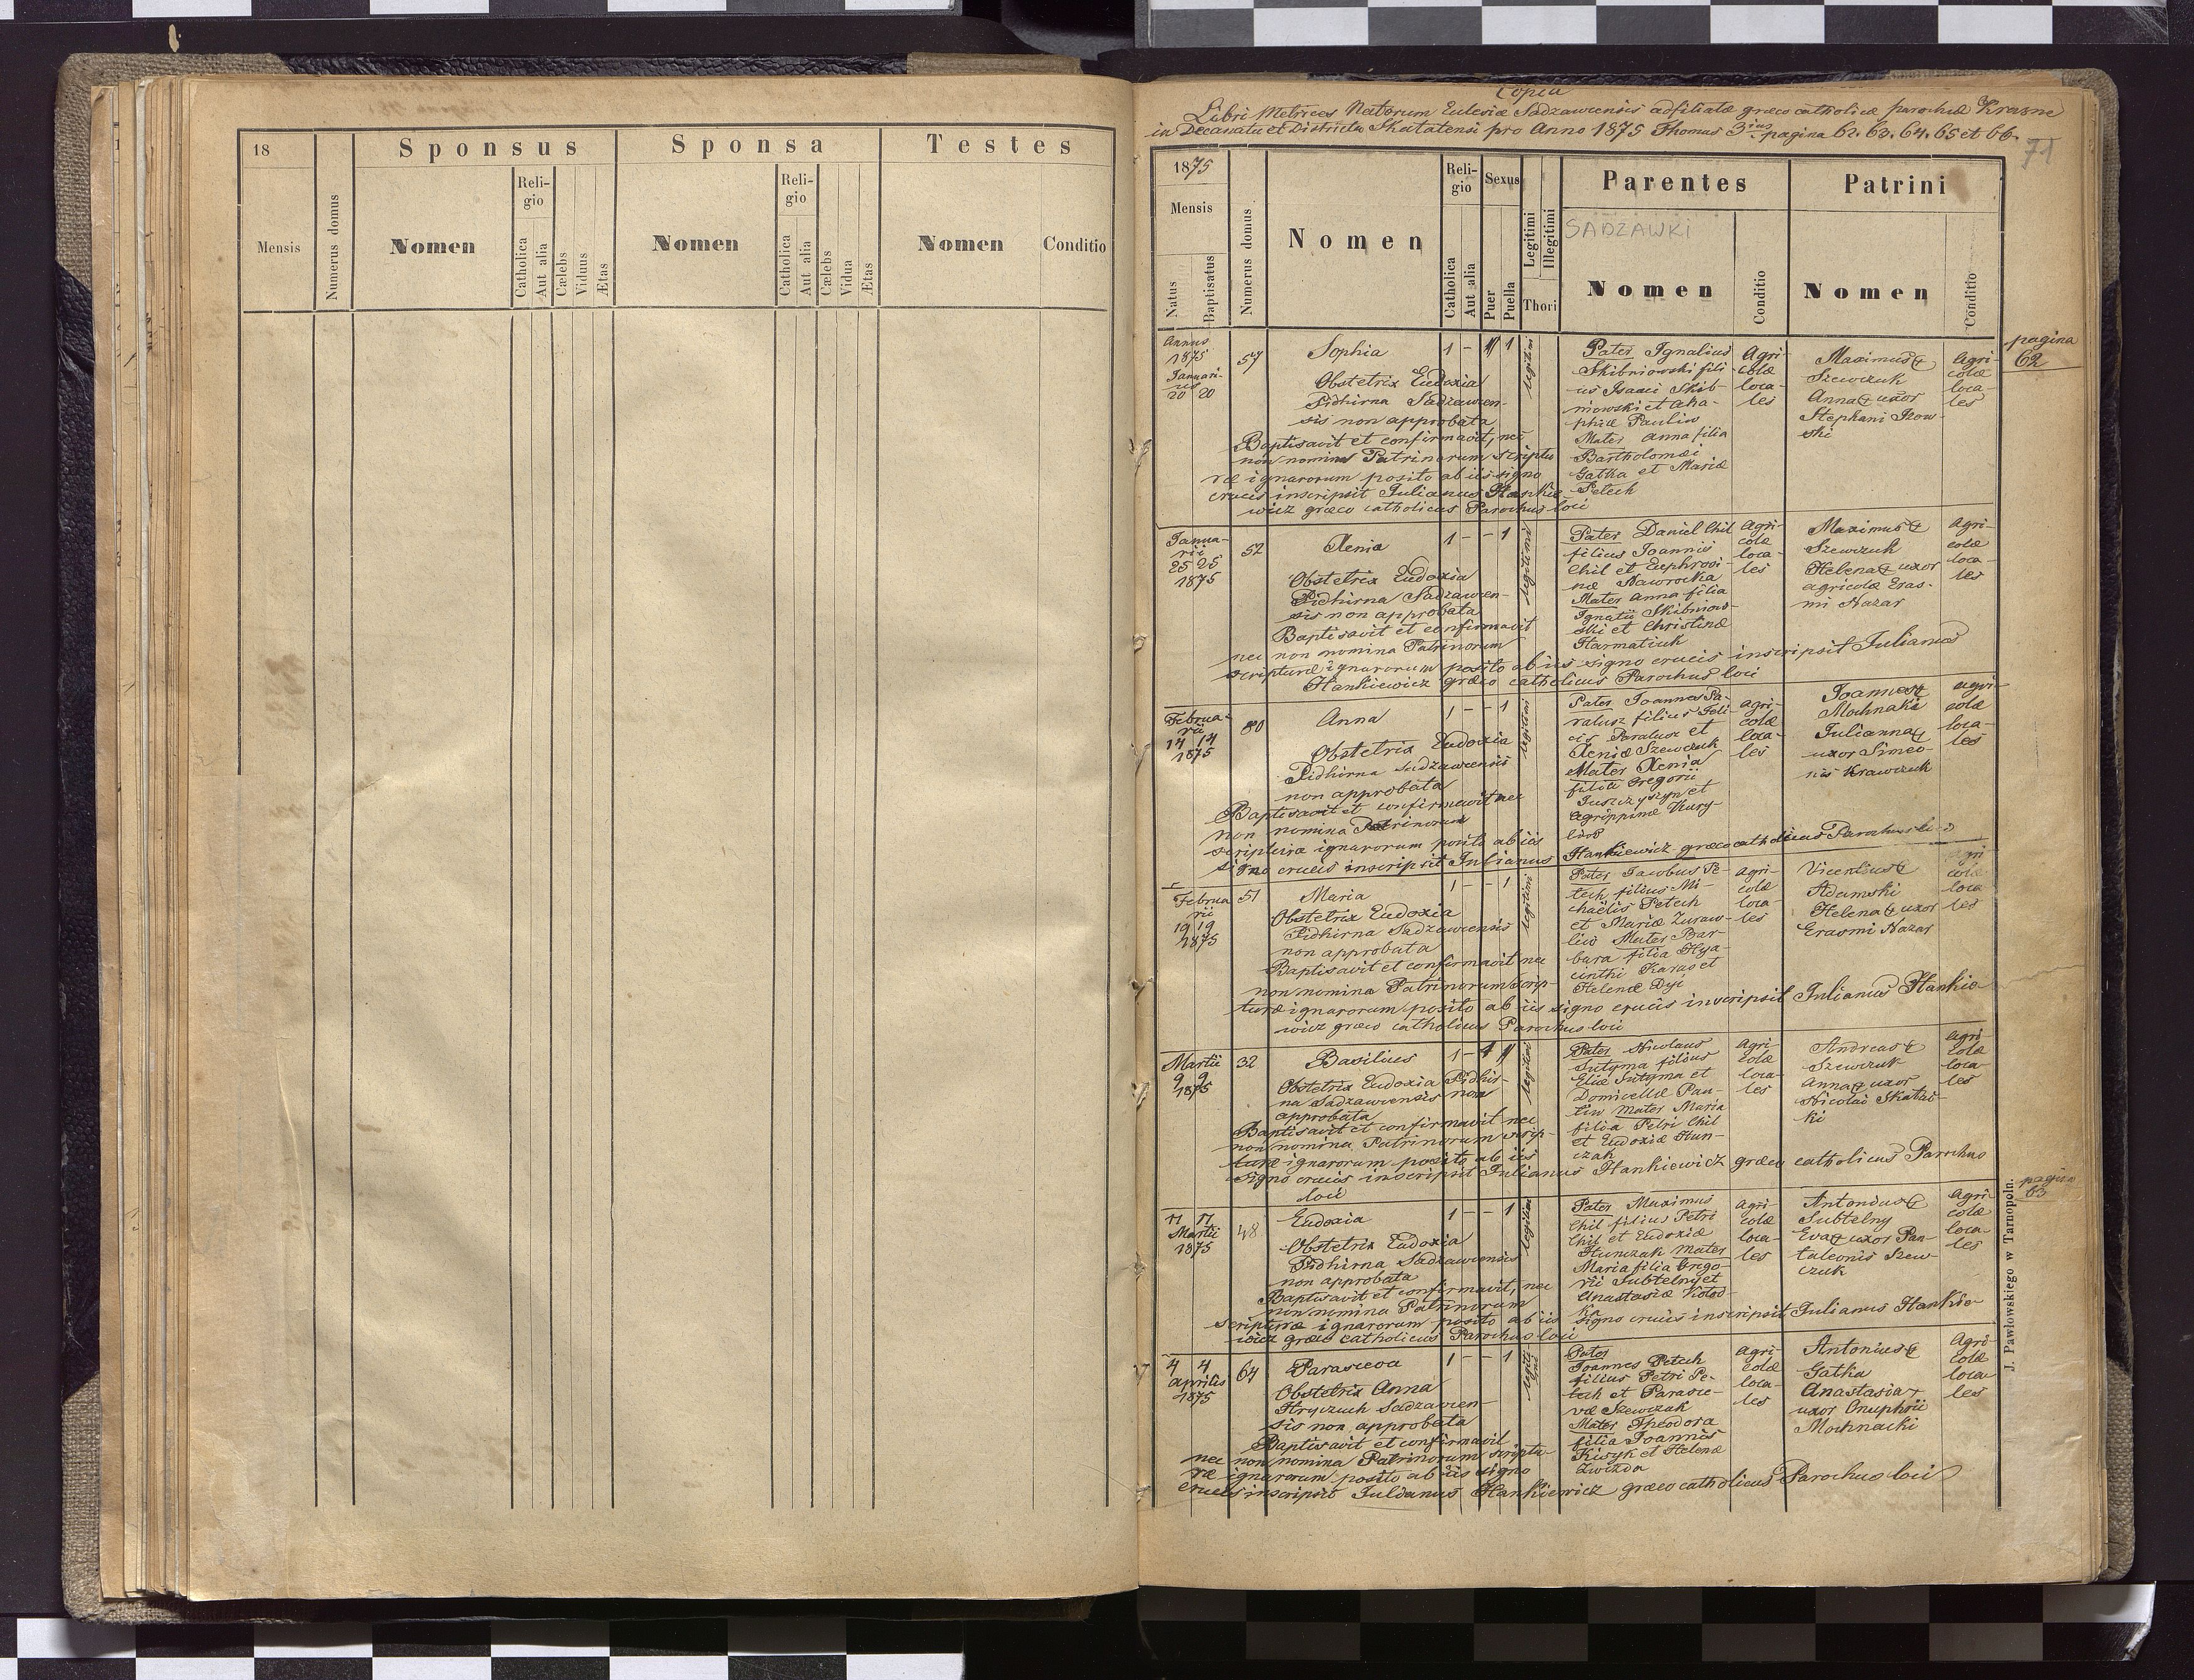 18
Sponsus
Sponsa
Testes
Mensis
Numerus domus
Nomen
Religio
Catholica
Aut alia
Cælebs
Viduus
Ætas
Nomen
Religio
Catholica
Aut alia
Cælebs
Vidua
Ætas
Nomen
Conditio
Copia
Libri Metrices Natorum Eclesiæ Sadzawcensis adfiliatæ græco catholicæ parochiæ Krasne
in Decanatu et Districtu Skalatensi pro Anno 1875 Thomus 3ius pagina 62. 63. 64. 65 et 66.
71
1875
Mensis
Natus
Baptisatus
Numerus domus
Nomen
Reli-
gio
Catholica
Aut alia
Sexus
Puer
Puella
Legitimi
Illegitimi
Thori
Parentes
SADZAWKI
Nomen
Conditio
Patrini
Nomen
Conditio
pagina
62
Annus
1875
Januari-
us
20 20
57
Sophia
1 - 1
legitimi
Obstetrix Eudoxia
Pidhirna Sadzawcen-
sis non approbata
Baptisavit et confirmavit, nec
non nomina Patrinorum scriptu
ræ ignarorum posito ab iis signo
crucis inscripsit Julianus Hankie-
wicz græco catholicus Parochus loci
Pater Ignatius
Skibniowski fili-
us Isaaci Skib-
niowski et Aha-
phiæ Pauliw
Mater Anna filia
Bartholomæi
Gatka et Mariæ
Petech
Agri-
colæ
loca-
les
Maximus +
Szewczuk
Anna + uxor
Stephani Isow-
ski
Agri-
colæ
loca-
les
Janua-
rii
25 25
1875
52
Xenia
1 - - 1
legitimi
Obstetrix Eudoxia
Pidhirna Sadzawcen-
sis non approbata
Baptisavit et confirmavit
nec non nomina Patrinorum
scripturæ ignarorum posito ab iis signo crucis inscripsit Julianus
Hankiewicz græco catholicus Parochus loci
Pater Daniel Chil
filius Joannis
Chil et Euphrosi-
næ Nawrocka
Mater Anna filia
Ignatii Skibniow-
ski et Christinæ
Harmatiuk
Agri-
colæ
loca-
les
Maximus +
Szewczuk
Helena + uxor
agricolæ Eras-
mi Nazar
Agri-
colæ
loca-
les
Februa-
rii
14 14
1875
80
Anna
1 - - 1
legitimi
Obstetrix Eudoxia
Pidhirna Sadzawcensis
non approbata
Baptisavit et confirmavit nec
non nomina Patrinorum
scripturæ ignarorum posito ab iis
signo crucis inscripsit Julianus Hankiewicz græco catholicus Parochus loci
Pater Joannes Pa-
ralusz filius Feli-
cis Paralusz et
Xeniæ Szewczuk
Mater Xenia
filia Gregorii
Juszczyszyn et
Agrippinæ Kury-
Agri-
colæ
loca-
les
Joannes +
Mochnaki
Julianna +
uxor Simeo-
nis Krawczuk
agri-
colæ
loca-
les
Februa
rii
19 19
1875
51
Maria
1 - - 1
legitimi
Obstetrix Eudoxia
Pidhirna Sadzawcensis
non approbata
Baptisavit et confirmavit nec
non nomina Patrinorum scrip-
turæ ignarorum posito ab iis signo crucis inscripsit Julianus Hankie
wicz græco catholicus Parochus loci
Pater Jacobus Pe-
tech filius Mi-
chaëlis Petech
et Mariæ Zuraw-
liw Mater Bar-
bara filia Hya-
cinthi Karas et
Helenæ Dyi
Agri-
colæ
loca-
les
Vicentius +
Adamski
Helena + uxor
Erasmi Nazar
agri
colæ
loca
les
Martii
9 9
1875
32
Basilius
1 - 1
legitimi
Obstetrix Eudoxia Pidhir-
na Sadzawcensis non
approbata
Baptisavit et confirmavit nec
non nomina Patrinorum scrip-
turæ ignarorum posito ab iis
signo crucis inscripsit Julianus Hankiewicz græco catholicus Parochus
loci
Pater Nicolaus
Sutyma filius
Eliæ Sutyma et
Domicellæ Pau-
liw Mater Maria
filia Petri Chil
et Eudoxiæ Hun-
czak
Agri-
colæ
loca-
les
Andreas +
Szewczuk
Anna + uxor
Nicolai Skatus-
ki
Agri-
colæ
loca-
les
pagina
63
17 17
Martii
1875
48
Eudoxia
1 - - 1
legitimi
Obstetrix Eudoxia
Pidhirna Sadzawcensis
non approbata
Baptisavit et confirmavit, nec
non nomina Patrinorum
scripturæ ignarorum posito ab iis signo crucis inscripsit Julianus Hankie-
wicz græco catholicus Parochus loci
Pater Maximus
Chil filius Petri
Chil et Eudoxiæ
Hunczak Mater
Maria filia Grego-
rii Subtelny et
Anastasiæ Kolod-
ka
Agri-
colæ
loca-
les
Antonius +
Subtelny
Eva + uxor Pan-
taleonis Szew-
czuk
Agri-
colæ
loca-
les
4 4
Aprilis
1875
64
Parasceva
1 - - 1
legiti
mi
Obstetrix Anna
Hryczuch Sadzawcen-
sis non approbata
Baptisavit et confirmavit
nec non nomina Patrinorum scriptu-
ræ ignarorum posito ab iis signo
crucis inscripsit Julianus Hankiewicz græco catholicus Parochus loci
Pater
Joannes Petech
filius Petri Pe-
tech et Parasce-
væ Szewczak
Mater Theodora
filia Joannis
Kisyk et Helenæ
Zwizda
Agri-
colæ
loca-
les
Antonius +
Gatka
Anastasia +
uxor Onuphrii
Mochnacki
Agri-
colæ
loca
les
J. Pawłowskiego w Tarnopoln.